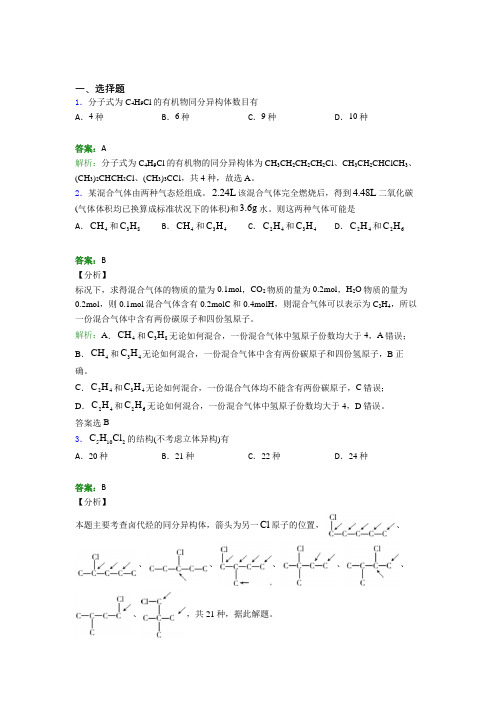 一、选择题
1．分子式为 C₄H₉Cl 的有机物同分异构体数目有
A．4 种 B．6 种 C．9 种 D．10 种
答案：A
解析：分子式为 C₄H₉Cl 的有机物的同分异构体为 CH₃CH₂CH₂CH₂Cl、CH₃CH₂CHClCH₃、
(CH₃)₂CHCH₂Cl、(CH₃)₃CCl，共 4 种，故选 A。
2．某混合气体由两种气态烃组成。2.24L 该混合气体完全燃烧后，得到 4.48L 二氧化碳
(气体体积均已换算成标准状况下的体积)和 3.6g 水。则这两种气体可能是
A．CH₄ 和 C₃H₈ B．CH₄ 和 C₃H₄ C．C₂H₄ 和 C₃H₄ D．C₂H₄ 和 C₂H₆
答案：B
【分析】
标况下，求得混合气体的物质的量为 0.1mol，CO₂ 物质的量为 0.2mol，H₂O 物质的量为
0.2mol，则 0.1mol 混合气体含有 0.2molC 和 0.4molH，则混合气体可以表示为 C₂H₄，所以
一份混合气体中含有两份碳原子和四份氢原子。
解析：A．CH₄ 和 C₃H₈ 无论如何混合，一份混合气体中氢原子份数均大于 4，A 错误；
B．CH₄ 和 C₃H₄ 无论如何混合，一份混合气体中含有两份碳原子和四份氢原子，B 正
确。
C．C₂H₄ 和 C₃H₄ 无论如何混合，一份混合气体均不能含有两份碳原子，C 错误；
D．C₂H₄ 和 C₂H₆ 无论如何混合，一份混合气体中氢原子份数均大于 4，D 错误。
答案选 B
3．C₅H₁₀Cl₂ 的结构(不考虑立体异构)有
A．20 种 B．21 种 C．22 种 D．24 种
答案：B
【分析】
本题主要考查卤代烃的同分异构体，箭头为另一 Cl 原子的位置，
Cl
C—C—C—C—C
、
Cl
C—C—C—C—C
、
Cl
C—C—C—C—C
、
Cl
C—C—C—C
C
、
Cl
C—C—C—C
C
、
Cl
C—C—C—C
C
、
Cl
C—C—C—C
C
、
Cl—C
C—C—C
C
，共 21 种，据此解题。